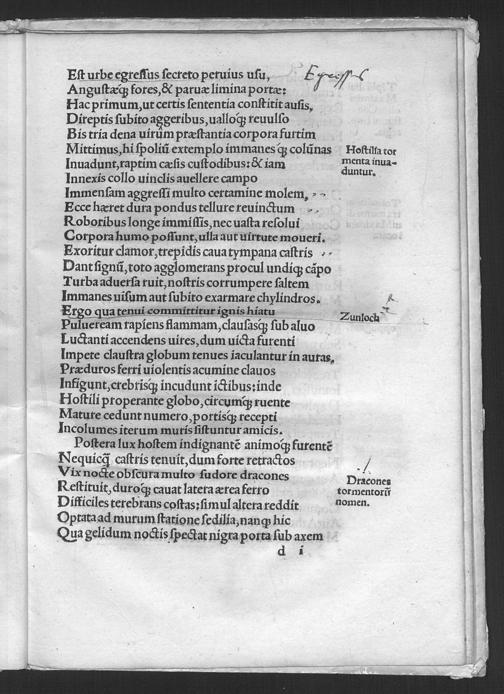 Est urbe egressus secreto peruius usu,
Egressus
Angustæq; fores, & paruæ limina portæ:
Hac primum, ut certis sententia constitit ausis,
Direptis subito aggeribus, ualloq; reuulso
Bis tria dena uirum præstantia corpora furtim
Mittimus, hi spoliũ extemplo immanes q; colũnas
Hostilia tor
menta inua-
duntur.
Inuadunt, raptim cæsis custodibus: & iam
Innexis collo uinclis auellere campo
Immensam aggressi multo certamine molem,
Ecce hæret dura pondus tellure reuinctum
Roboribus longe immissis, nec uasta resolui
Corpora humo possunt, ulla aut uirtute moueri.
Exoritur clamor, trepidis caua tympana castris
Dant signũ, toto agglomerans procul undiq; cãpo
Turba aduersa ruit, nostris corrumpere saltem
Immanes uisum aut subito exarmare chylindros.
Ergo qua tenui committitur ignis hiatu
Zunloch
Pulueream rapiens flammam, clausasq; sub aluo
Luctanti accendens uires, dum uicta furenti
Impete claustra globum tenues iaculantur in auras,
Præduros ferri uiolentis acumine clauos
Infigunt, crebrisq; incudunt ictibus: inde
Hostili properante globo, circumq; ruente
Mature cedunt numero, portisq; recepti
Incolumes iterum muris sistuntur amicis.
Postera lux hostem indignantẽ animoq; furentẽ
Nequicq̃ castris tenuit, dum forte retractos
Vix nocte obscura multo sudore dracones
Dracones
tormentorũ
nomen.
Restituit, duroq; cauat latera ærea ferro
Difficiles terebrans costas; simul altera reddit
Optata ad murum statione sedilia, nanq; hic
Qua gelidum noctis spectat nigra porta sub axem
d i